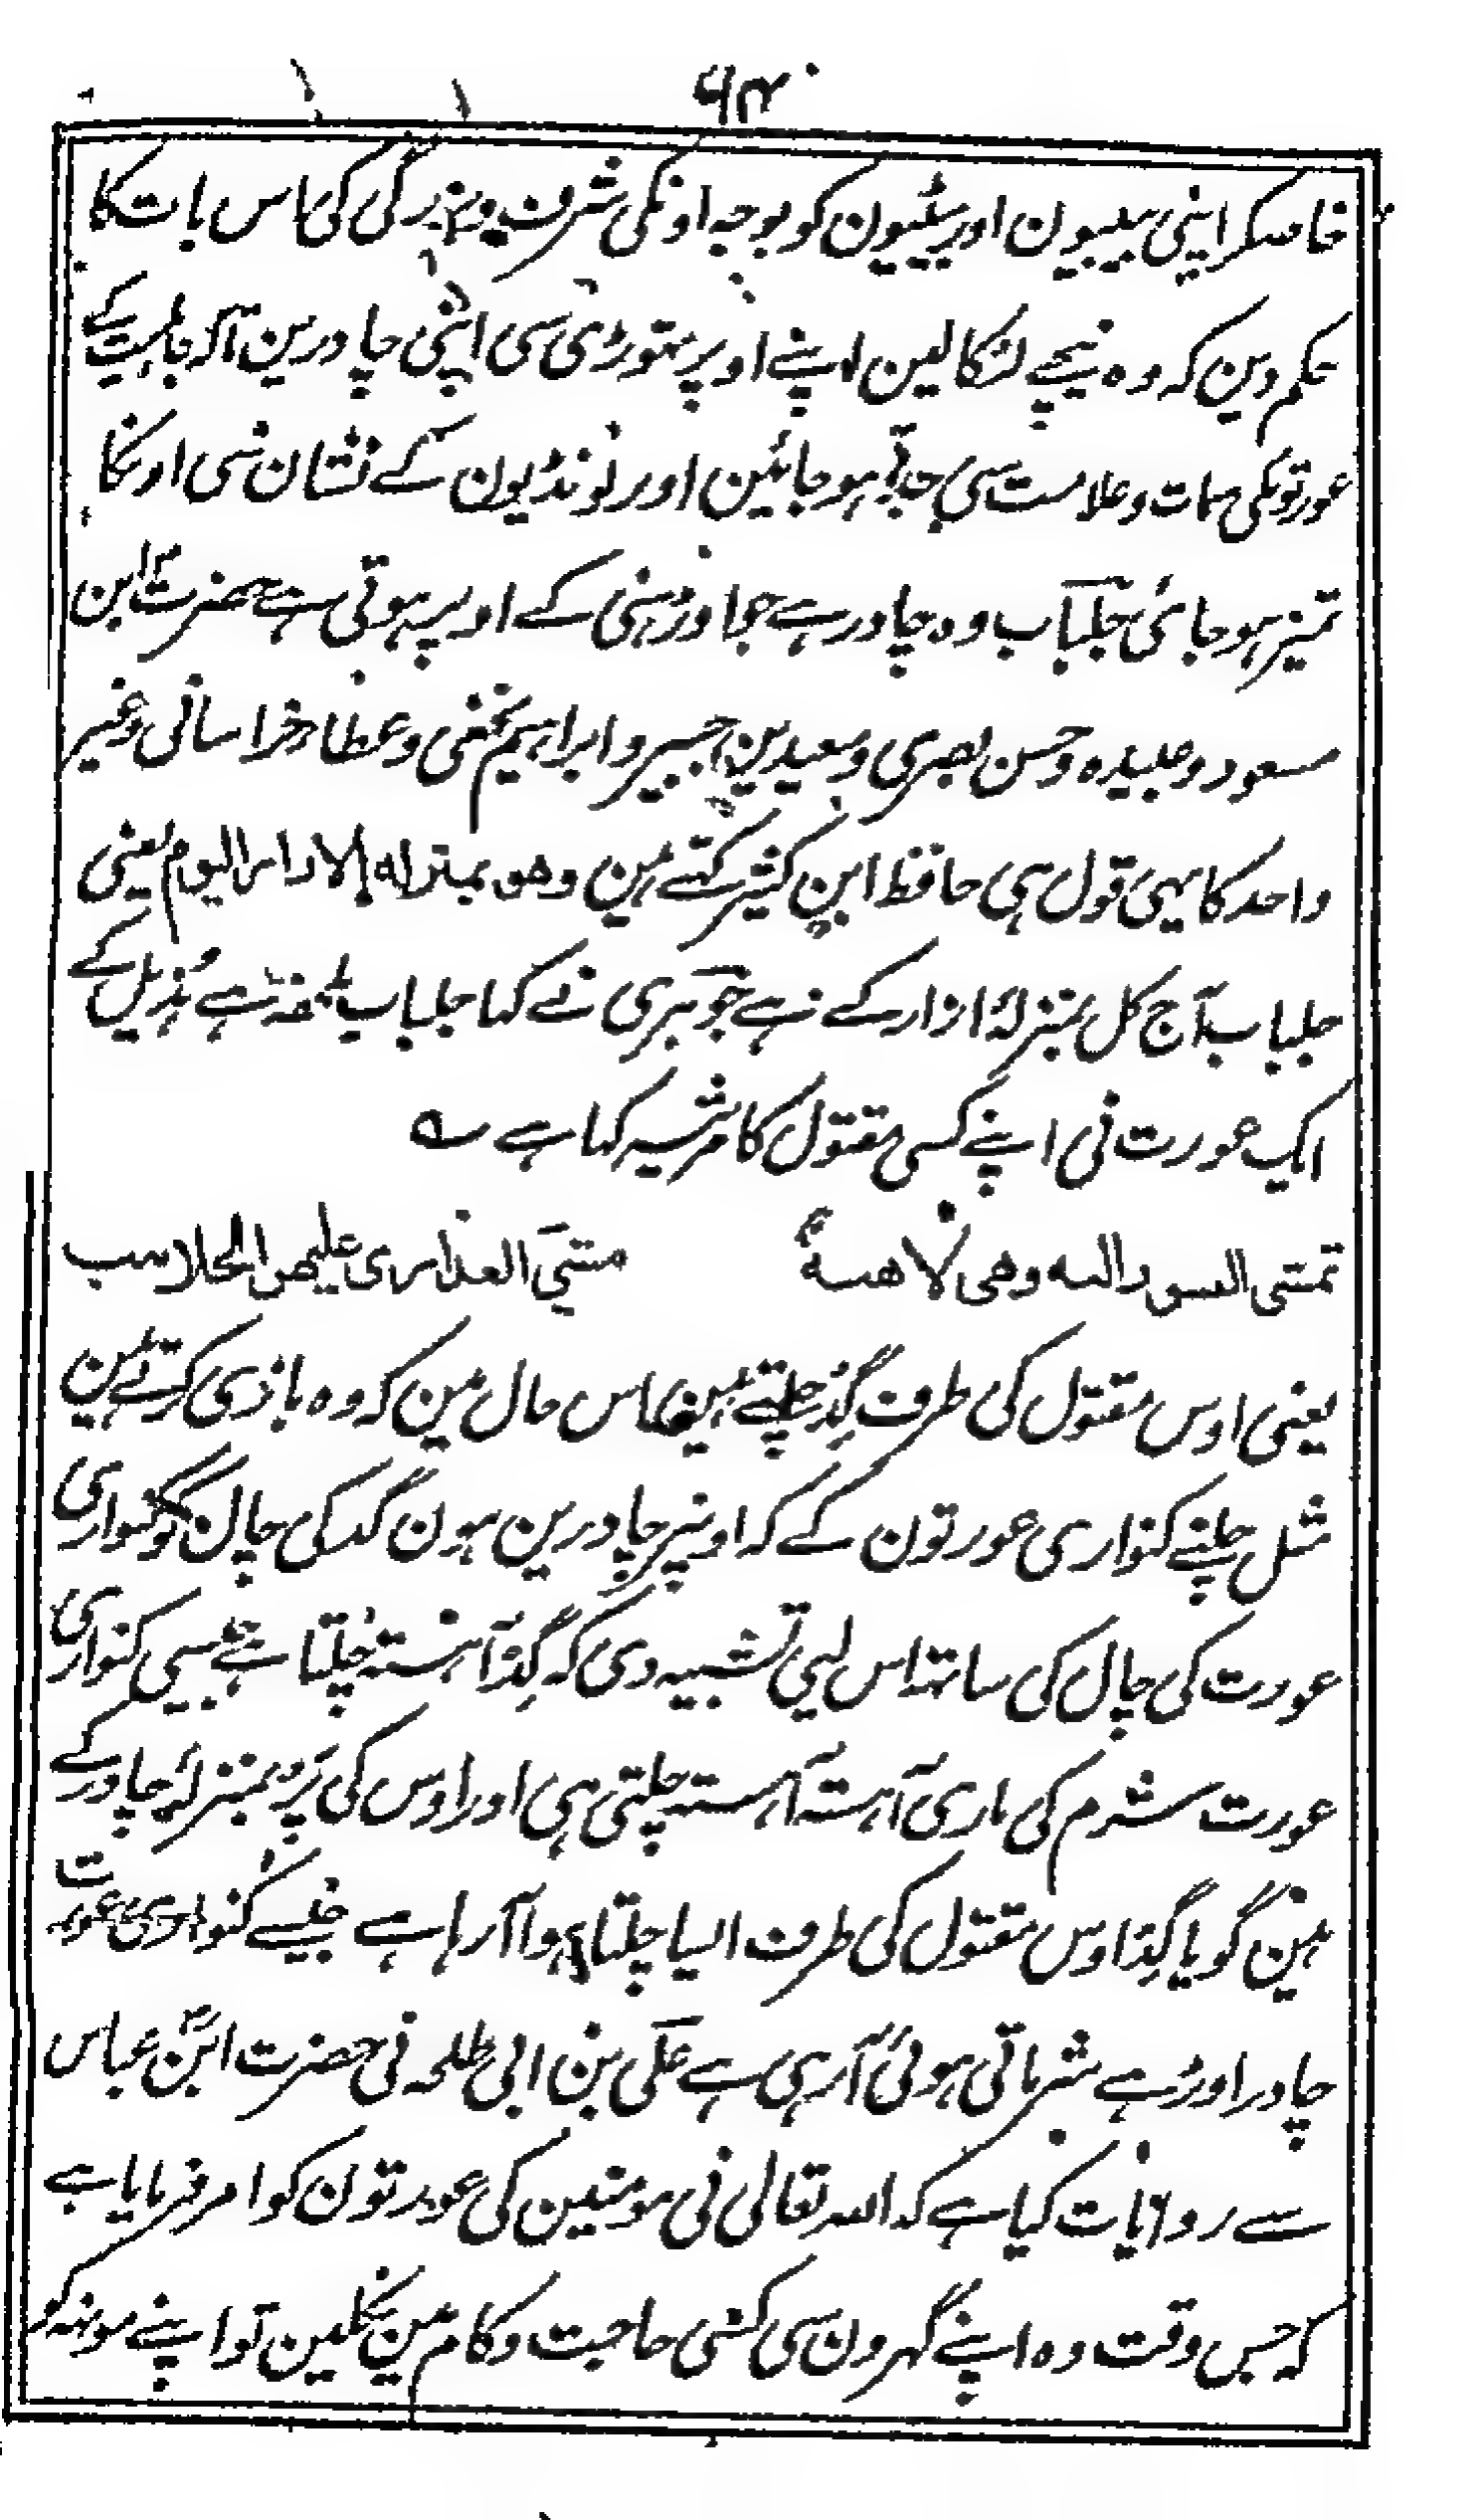 ۶۴
خاصکر اپنی بیبیون اور بیٹیون کو بوجہ اونکی شرف و بزرگی کی اس بات کا
حکم دین کہ وہ نیچے لٹکا لین اپنے اوپر تھوڑی سی اپنی چادرین تاکہ جاہلیت کے
عورتونکی سمات و علامت سی جدا ہو جائین اور لونڈیون کے نشان سی اونکا
تمیز ہو جائی جلباب وہ چادر ہے جو اوڑہنی کے اوپر ہوتی ہے حضرت ابن
مسعود و عبیدہ و حسن بصری و سعید بن جبیر و ابراہیم نخعی و عطاء خراسانی و غیر
واحد کا یہی قول ہی حافظ ابن کثیر کہتے ہین وهو بمنزلة الازار اليوم یعنی
جلباب آج کل بمنزلۂ ازار کے ہے جوہری نے کہا جلباب ملحفہ ہے ہُذیل کے
ایک عورت نی اپنے کسی مقتول کا مرثیہ کہا ہے ؎
تمشي النسور اليه وهي لاهية مشي العذارى عليهن الجلابيب
یعنی اوس مقتول کی طرف گِد چلتے ہین اس حال مین کہ وہ بازی کرتے ہین
مثل چلنے کنواری عورتون کے کہ اونپر چادرین ہون گد کی چال کو کنواری
عورت کی چال کی ساتہ اس لیی تشبیہ دی کہ گِد آہستہ چلتا ہے جیسی کنواری
عورت شرم کی ماری آہستہ آہستہ چلتی ہی اور اوس کی پَر بمنزلۂ چادر کے
ہین گویا گِد اوس مقتول کی طرف ایسا چلتا ہوا آرہا ہے جیسے کنواری عورت
چادر اوڑہے شرماتی ہوئی آرہی ہے علی بن ابی طلحہ نی حضرت ابن عباس
سے روایات کیا ہے کہ اللہ تعالی نی مومنین کی عورتون کو امر فرمایا ہے
کہ جس وقت وہ اپنے گہرون سی کسی حاجت و کام مین نکلین تو اپنے مونہہ کو